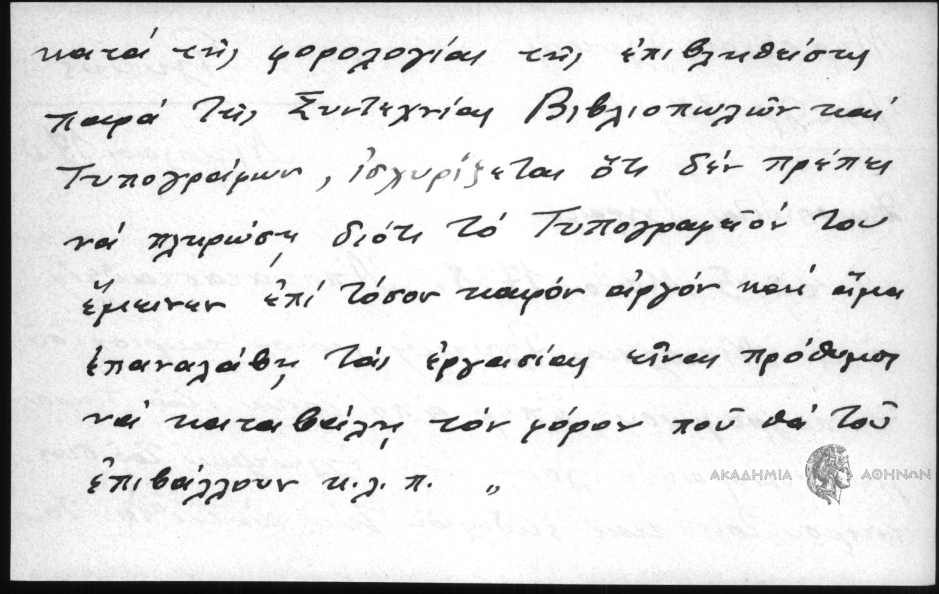 κατά τῆς φορολογίας τῆς ἐπιβληθείσης
παρά τῆς Συντεχνίας Βιβλιοπωλῶν καί
Τυπογράφων, ἰσχυρίζεται ὅτι δέν πρέπει
νά πληρώσῃ διότι τό Τυπογραφεῖόν του
ἔμεινεν ἐπί τόσον καιρόν ἀργόν καί ἅμα
ἐπαναλάβῃ τάς ἐργασίας εἶναι πρόθυμος
νά καταβάλῃ τόν φόρον πού θά τοῦ
ἐπιβάλλουν κ.λ.π. „
ΑΚΑΔΗΜΙΑ ΑΘΗΝΩΝ